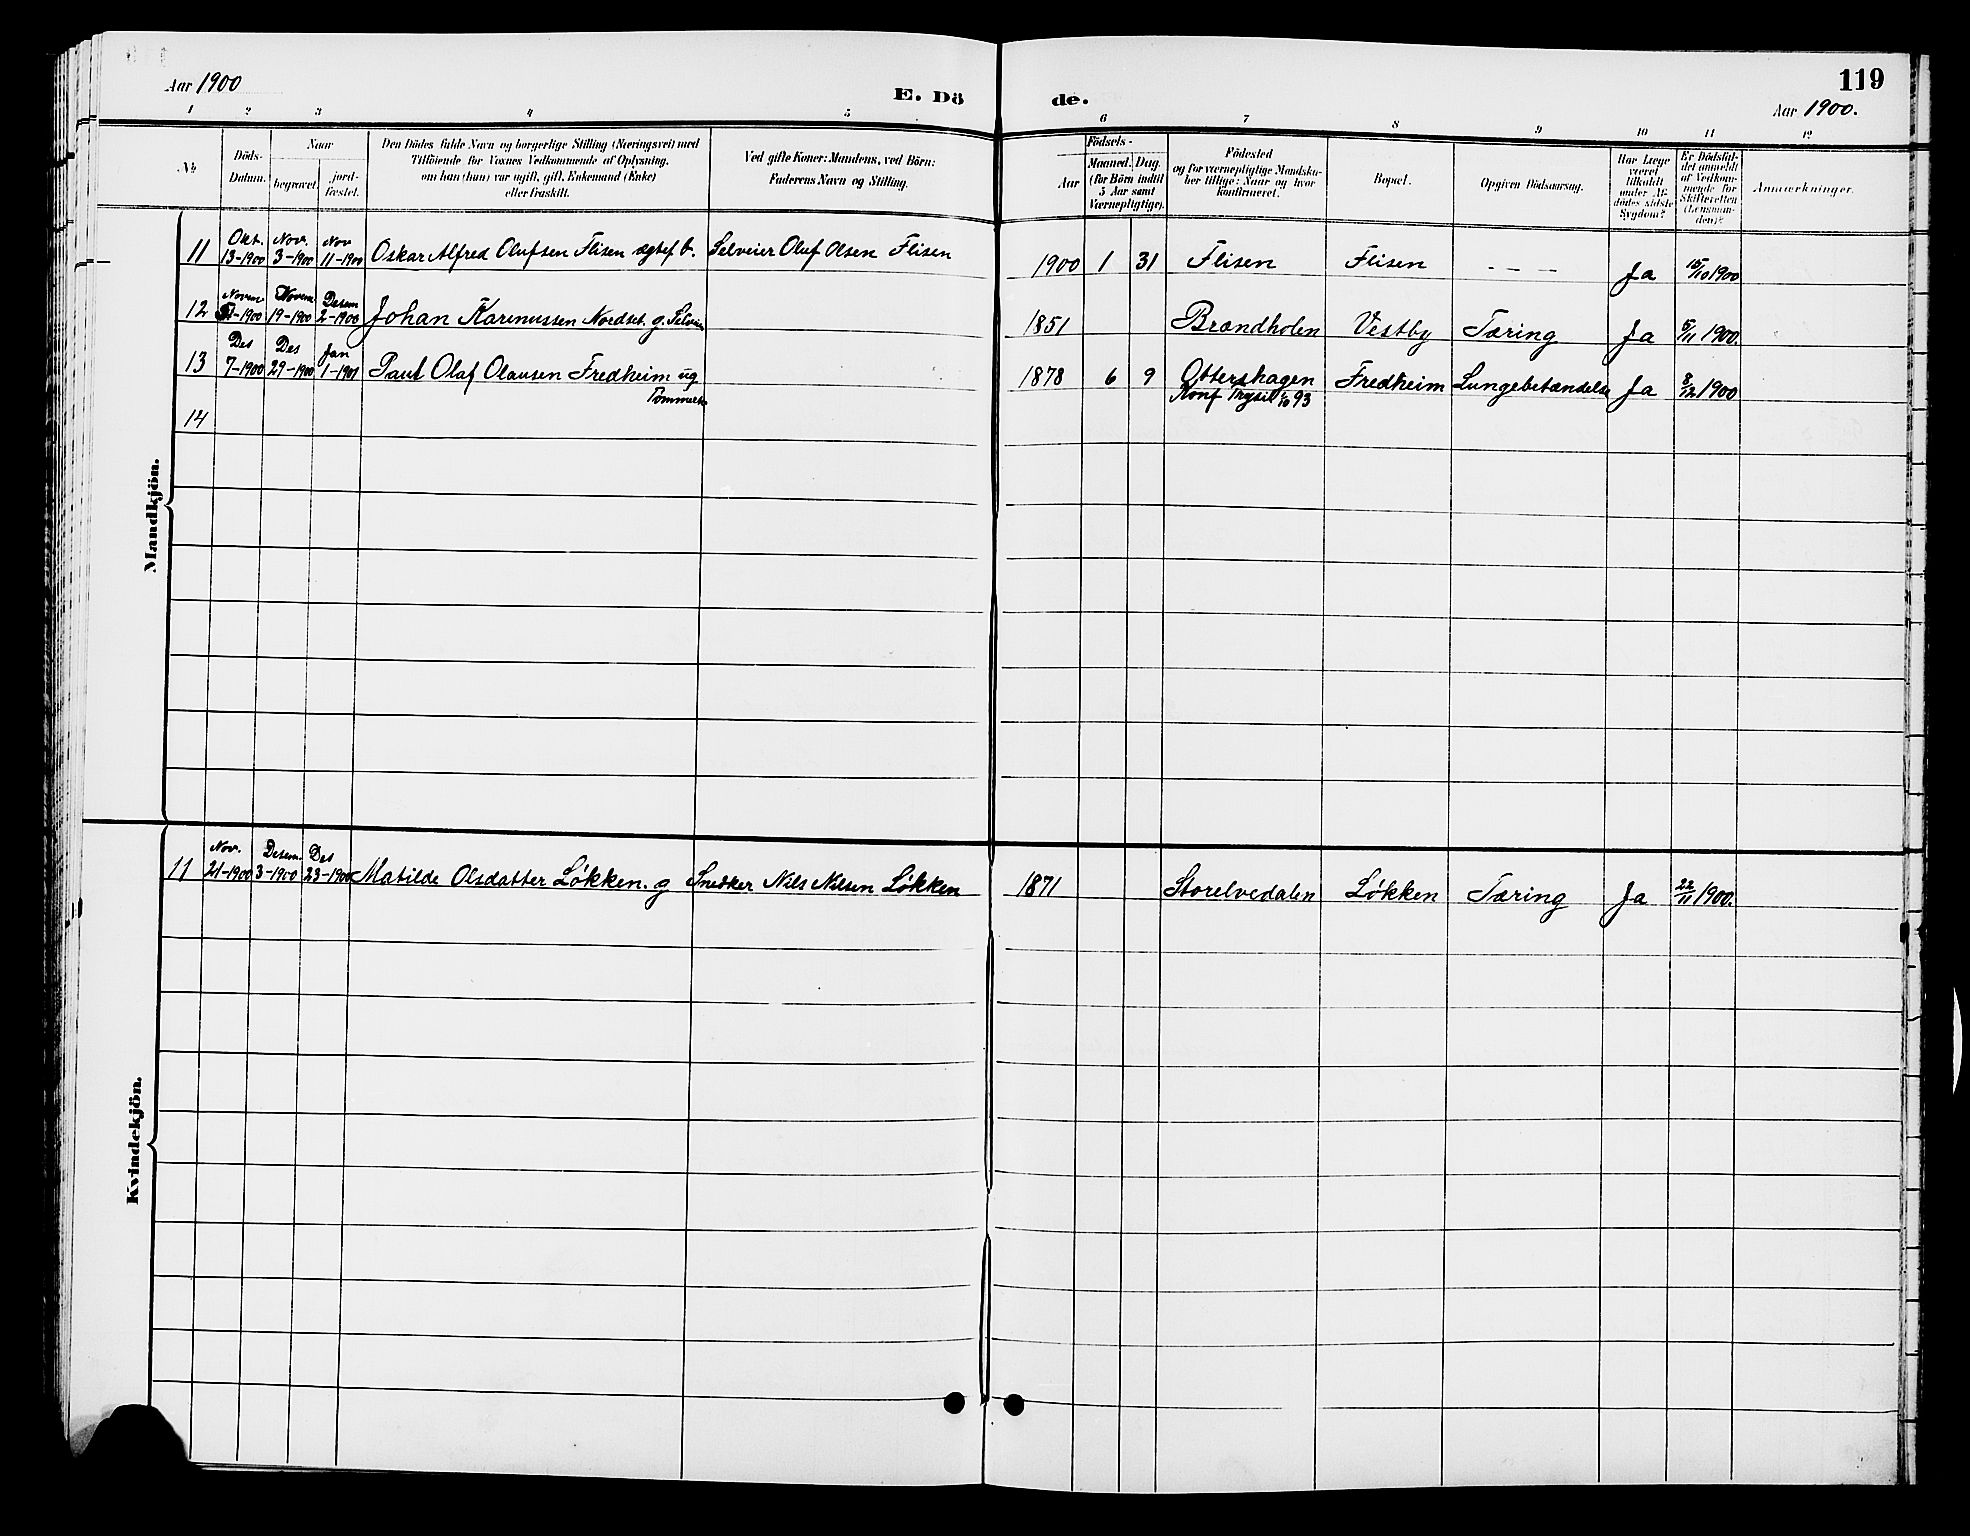 119
Aar 1900
E. Dö
de.
Aar 1900.
1 2 3 4 5
6 7 8 9 10 11 12
No.
Döds-
Datum.
Naar
begravet.
jord-
fæstet.
Den Dödes fulde Navn og borgerlige Stilling (Næringsvei) med
Tilföiende for Voxnes Vedkommende af Oplysning,
om han (hun) var ugift, gift, Enkemand (Enke)
eller fraskilt.
Ved gifte Koner: Mandens, ved Börn:
Faderens Navn og Stilling.
Födsels-
Aar
Maaned.
Dag.
(for Börn indtil
5 Aar samt
Værnepligtige).
Födested
og for værnepligtige Mandska-
ber tillige: Naar og hvor
konfirmeret.
Bopæl.
Opgiven Dödsaarsag.
Har Læge
været
tilkaldt
under Af-
dödes sidste
Sygdom?
Er Dödsfal-
det anmeldt
af Vedkom-
mende for
Skifteretten
(Lensman-
den)?
Anmærkninger.
Mandkjön.
11 Okt. 13-1900 Nov. 3-1900 Nov 11-1900 Oskar Alfred Olufsen Flisen ægtef b. Selveier Oluf Olsen Flisen 1900 1 31 Flisen Flisen - - - Ja 15/10 1900
12 Novem -1900 Novem 19-1900 Desem 2-1900 Johan Karenussen Nordset. g. Selveier 1851 Brændholen Vestby Tæring Ja 5/11 1900.
13 Des 7-1900 Des 29-1900 Jan 1-1901 Paul Olaf Olausen Fredheim ug 1878 6 9 Ottershagen Fredheim Lungebetændelse Ja 8/12 1900
Tømmerh Konf Trysil 93
14
Kvindekjön.
11 Nov. 21-1900 Desem. 3-1900 Des 23-1900 Matilde Olsdatter Løkken. g Snedker Nils Nilsen Løkken 1871 Storelvedalen Løkken Tæring Ja 22/11 1900.